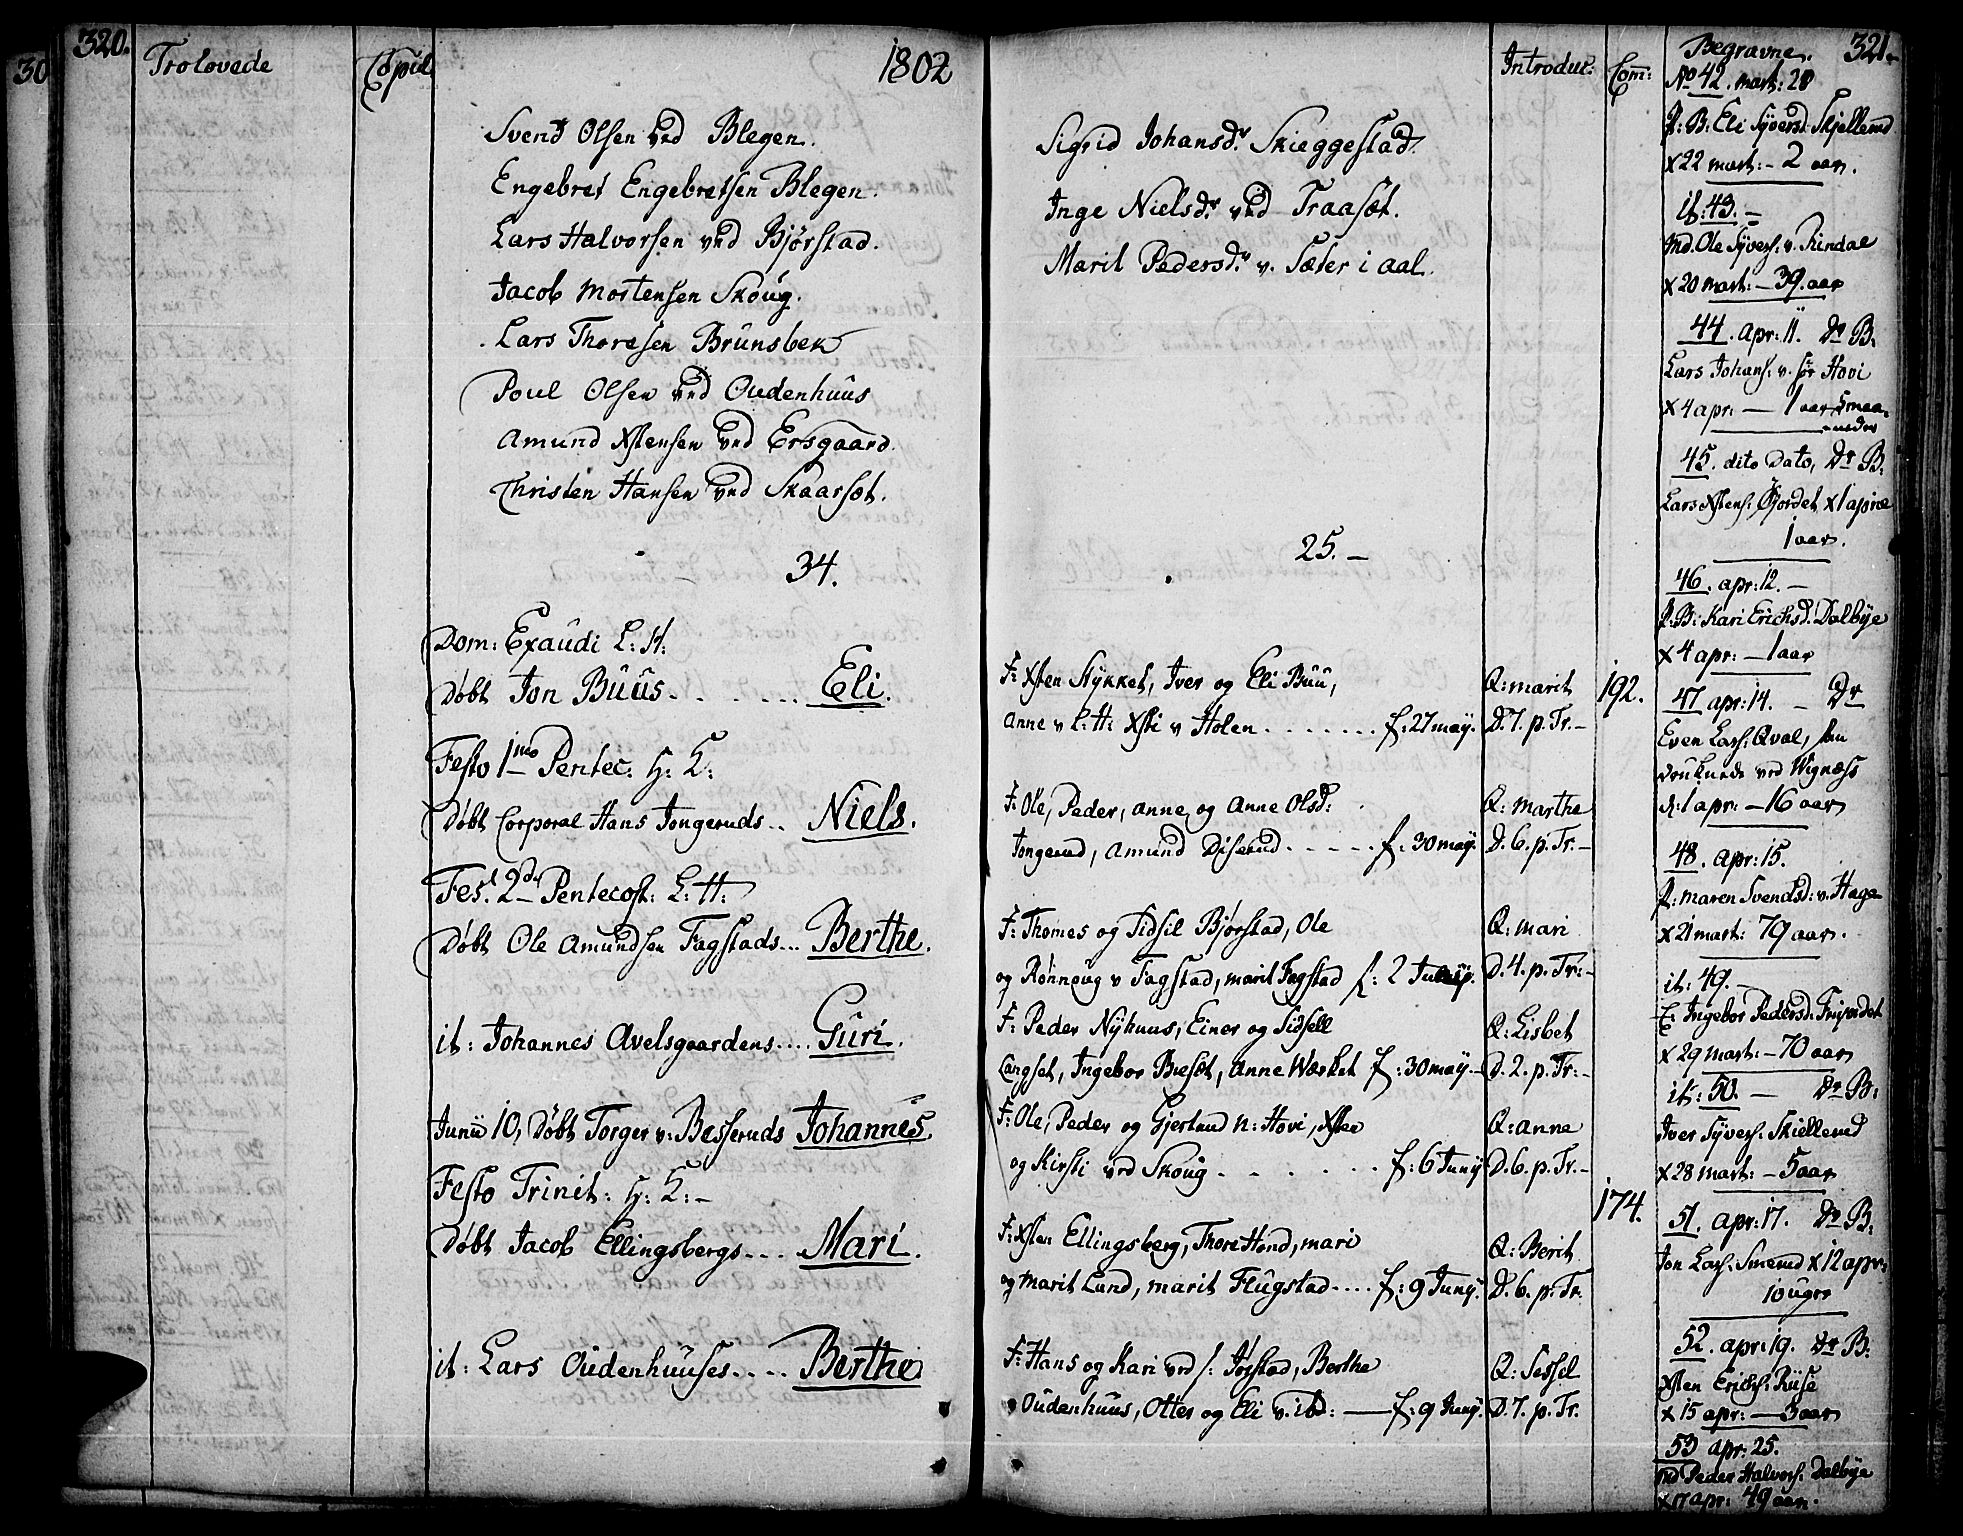 320.
Trolovede
Copul.
1802
Svend Olsen ved Blegen.
Engebret Engebretsen Blegen.
Lars Halvorsen ved Bjørstad.
Jacob Mortensen Skoug.
Lars Thoresen Brunsbek
Poul Olsen ved Oudenhuus
Amund Xstensen ved Ersgaard.
Christen Hansen ved Skaarsæt.
34.
Dom: Exaudi L: H:
Døbt Jon Buus. . . . . . . Eli.
Festo 1mo Pentec: H: K:
Døbt Corporal Hans Jongeruds . . Niels.
Fest 2d Pentecost: L: H:
Døbt Ole Amundsen Fagstads... Berthe.
it: Johannes Avelsgaardens.... Guri.
Junii 10, Døbt Torger v: Besseruds Johannes.
Festo Trinit: H: K: -
Døbt Jacob Ellingsbergs... Mari.
it: Lars Oudenhuuses.... Berthe.
Sigrid Johansdr Skieggestad.
Inge Nielsdr ved Traasæt.
Marit Pedersdr v. Sæter i Aal.
25. -
F: Xsten Stykket, Iver og Eli Buu,
Anne v L: H: Xsti v Holen . . . . . . . f: 27 may.
F: Ole, Peder, Anne og Anne Olsd:
Jongerud, Amund Diserud . . . . . f: 30 may.
F: Thomes og Sidsil Bjørstad, Ole
og Rønnoug v Fagstad, Marit Fagstad f: 2 Juny.
F: Peder Nyhuus, Einer og Sidsell
Langset, Ingebor Buesæt, Anne Wærket f: 30 may. -
F: Ole, Peder og Gjertrud n: Hovi, Xsten
og Kirsti ved Skoug . . . . . . . f: 6 Juny
F: Xsten Ellingsberg, Thore Hond, Mari
og Marit Lund, Marit Flugstad.... f: 9 Juny.
F: Hans og Kari ved s: Jørstad, Berthe
Oudenhuus, Otter og Eli v. ibd: — f: 9 Juny.
Introduc:
Q: Marit
D. 7. p. Tr. -
Q: Marthe
D. 6. p. Tr. -
Q: Mari
D. 4. p. Tr: -
Q: Lisbet
D. 2. p. Tr: -
Q: Anne
D. 6. p. Tr. -
Q: Berit
D. 6. p. Tr.
Q: Sessel
D. 7. p. Tr.
Com:
192.
174.
Begravne.
321.
No 42. Mart: 20
P: B: Eli Syversd. Skjellerud
x 22 mart: - 2 aar.
it: 43. -
Md. Ole Syvers. v. Rindal
x 20 mart: - 39 aar
44. apr: 11. Dr B:
Lars Johans: v. sør Hovi
x 4 apr: - 1 aar
45. dito Dato, Dr B:
Lars Xstens: Gjordet x 1 apriel
1 aar.
46. apr: 12. -
P. B: Kari Ericksd. Dalbye
x 4 apr: - 1 aar
47 apr: 14. - Dr
Even Lars: Qval, san
druknede ved Wignæss
d: 1 apr: - 16 aar
48. apr: 15.
P: Maren Svendsd: v. Hage
x 21 mart: 79 aar.
it: 49. -
E: Ingebor Pedersd:
x 29 mart: - 70 aar
it: 50. - Dr B:
Iver Syvers: Skiellerud
x 28 mart: - 5 aar
51. apr: 17. Dr B:
Jon Lars. Smerud x 12 apr:
10 uger
52. apr: 19. Dr B:
Xsten Ericks: Riise
x 15 apr: - 3 aar
53 apr: 25.
Md Peder Halvors: Dalbye
x 17 apr: 49 aar.